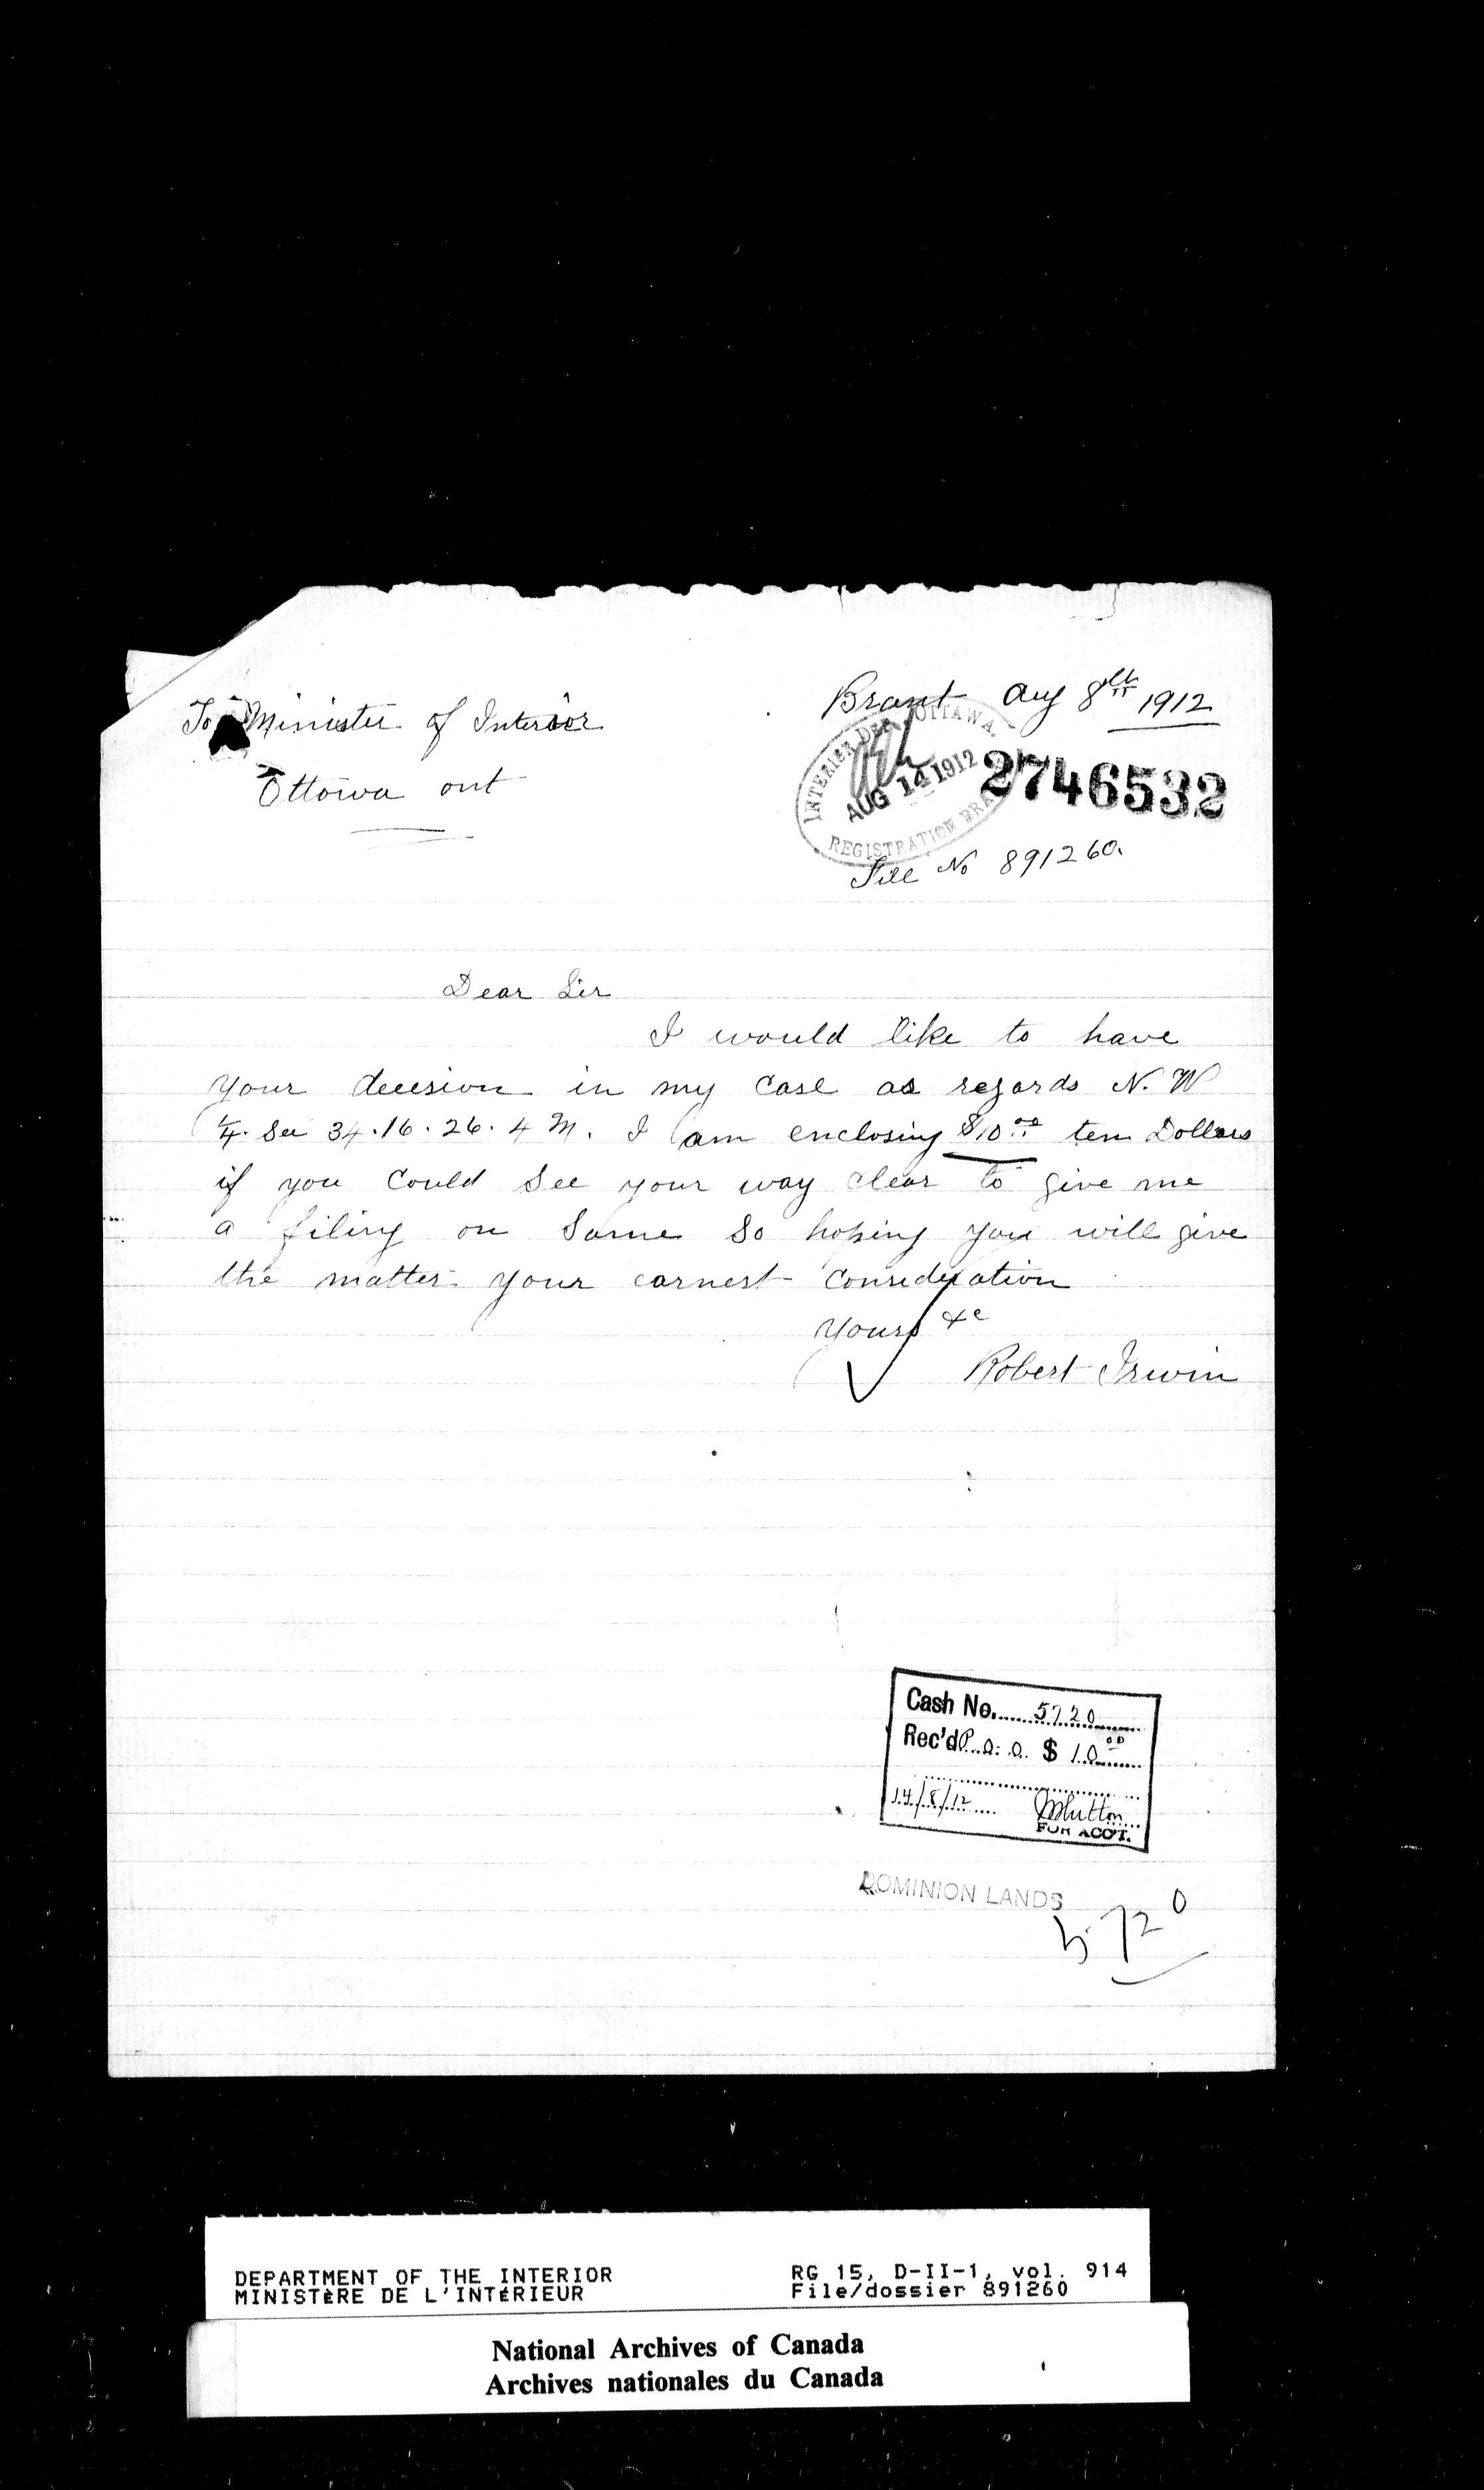 Brant Aug 8th 1912
To Minister of Interior
Ottowa ont
INTERIOR DEPT. OTTAWA.
AUG 14 1912
REGISTRATION BRA
2746532
File No 891260.
Dear Sir
I would like to have
your decision in my case as regards N. W
1/4. Sec 34.16.26.4 M. I am enclosing $10.00 ten Dollars
if you could see your way clear to give me
a filing on same so hoping you will give
the matter your earnest consideration
Yours &c
Robert Irwin
Cash No. 5720
Rec'd P.O.O. $ 10.00
14/8/12
FOR ACCT.
DOMINION LANDS
5720
DEPARTMENT OF THE INTERIOR RG 15, D-II-1, vol. 914
MINISTÈRE DE L'INTÉRIEUR File/dossier 891260
National Archives of Canada
Archives nationales du Canada